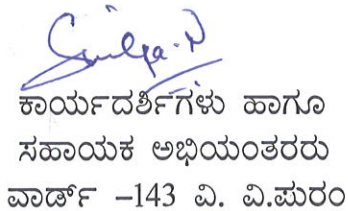 ಕಾರ್ಯದರ್ಶಿಗಳು ಹಾಗೂ
ಸಹಾಯಕ ಅಭಿಯಂತರರು
ವಾರ್ಡ್ –143 ವಿ. ವಿ.ಪುರಂ